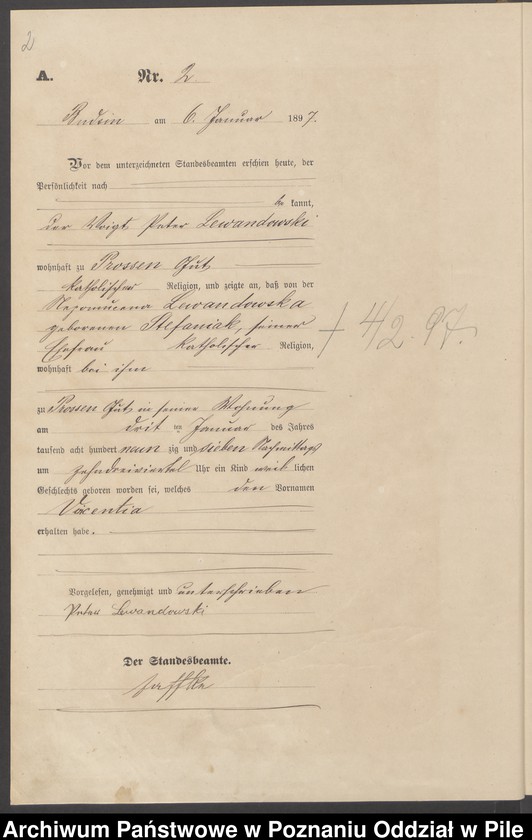 2
A. Nr. 2.
Budsin am 6. Januar 1897.
Vor dem unterzeichneten Standesbeamten erschien heute, der
Persönlichkeit nach
be kannt,
der Voigt Peter Lewandowski
wohnhaft zu Prossen Gut
katholischer Religion, und zeigte an, daß von der
Nepomucena Lewandowska
geborenen Stefaniak, seiner
Ehefrau katholischer Religion,
wohnhaft bei ihm
zu Prossen Gut in seiner Wohnung
am drit ten Januar des Jahres
tausend acht hundert neun zig und sieben Nachmittags
um zehndreiviertel Uhr ein Kind weib lichen
Geschlechts geboren worden sei, welches den Vornamen
erhalten habe.
Vorgelesen, genehmigt und unterschrieben
Peter Lewandowski
Der Standesbeamte.
Jaffke
+ 4/2. 97.
Archiwum Państwowe w Poznaniu Oddział w Pile